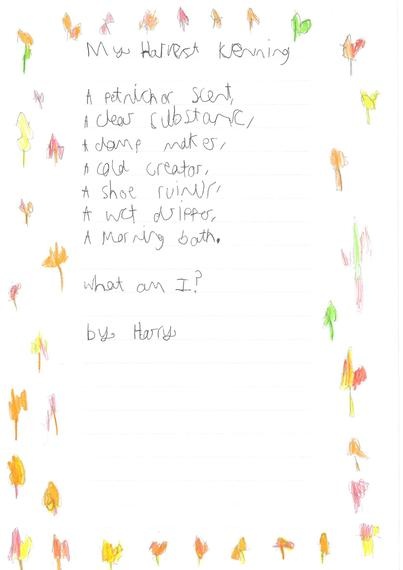 My Harvest Kenning
A petrichor scent,
A clear substance,
A damp maker,
A cold creator,
A shoe ruiner,
A wet dripper,
A Morning bath.
what am I?
by Harry